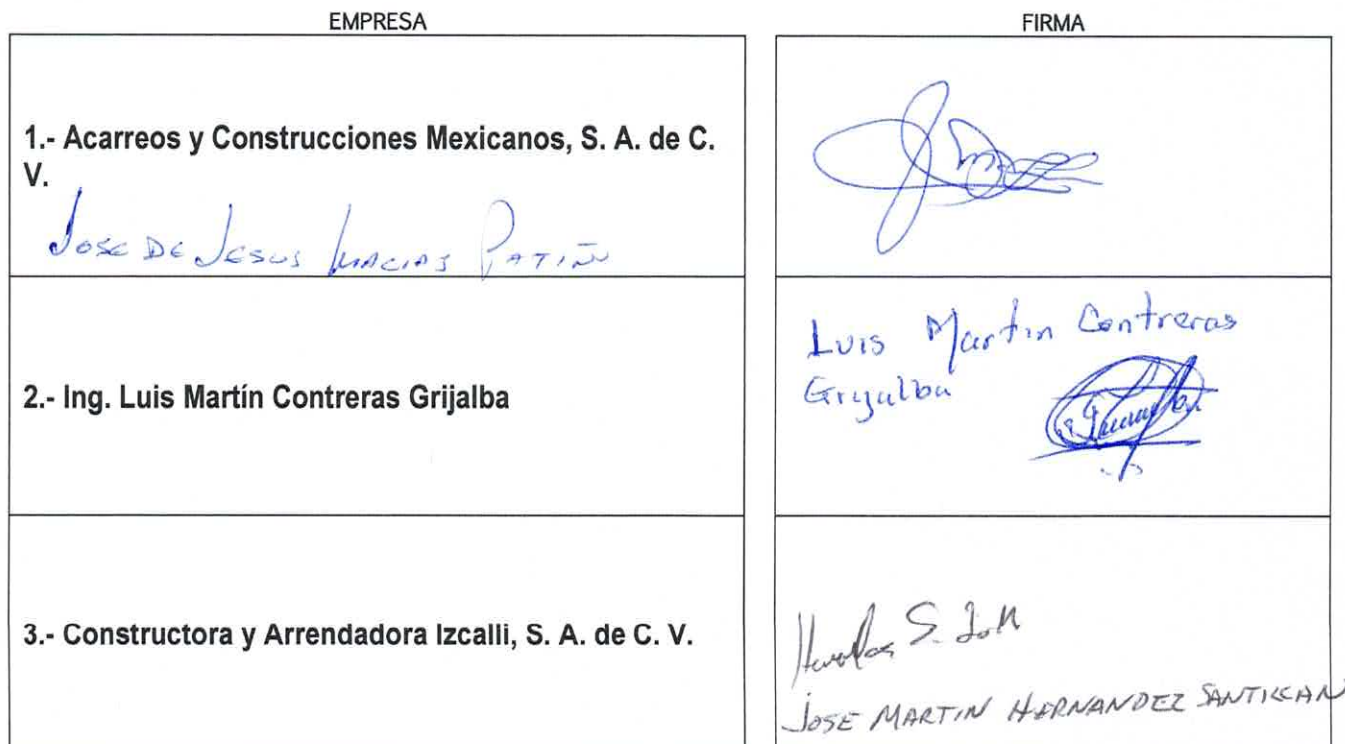 EMPRESA
FIRMA
1.- Acarreos y Construcciones Mexicanos, S. A. de C.
V.
JOSE DE JESUS MACIAS PATIÑO
2.- Ing. Luis Martín Contreras Grijalba
Luis Martin Contreras
Grijalba
3.- Constructora y Arrendadora Izcalli, S. A. de C. V.
JOSE MARTIN HERNANDEZ SANTILLAN